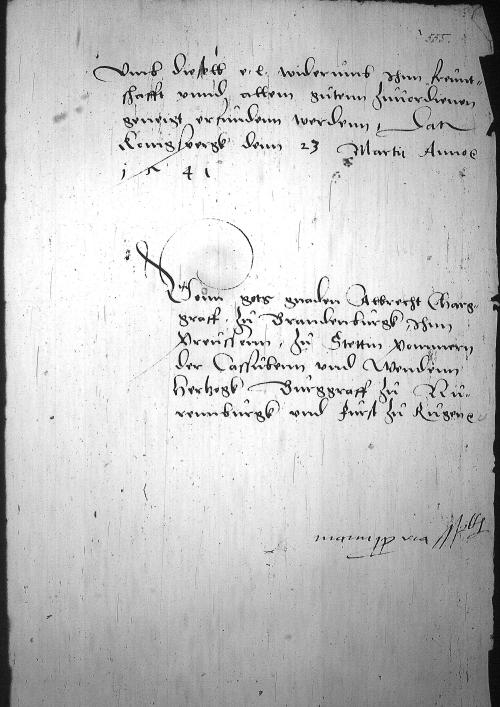 555.
Umb dieselb e. l. widerumb Jhnn freunt-
schafft vnnd allem gutenn zuuordienen
geneigt erfundenn werdenn, Dat
Konigsbergk denn 23 Martij Anno
1541
Vonn gots gnaden Albrecht Marg-
graff zu Brandenburgk, Jhnn
Preussenn, zu Stettin Pommern
der Cassubenn vnd Wendenn
Hertzogk Burggraff zu Nu-
rennburgk vnd Furst zu Rugen
manu pp